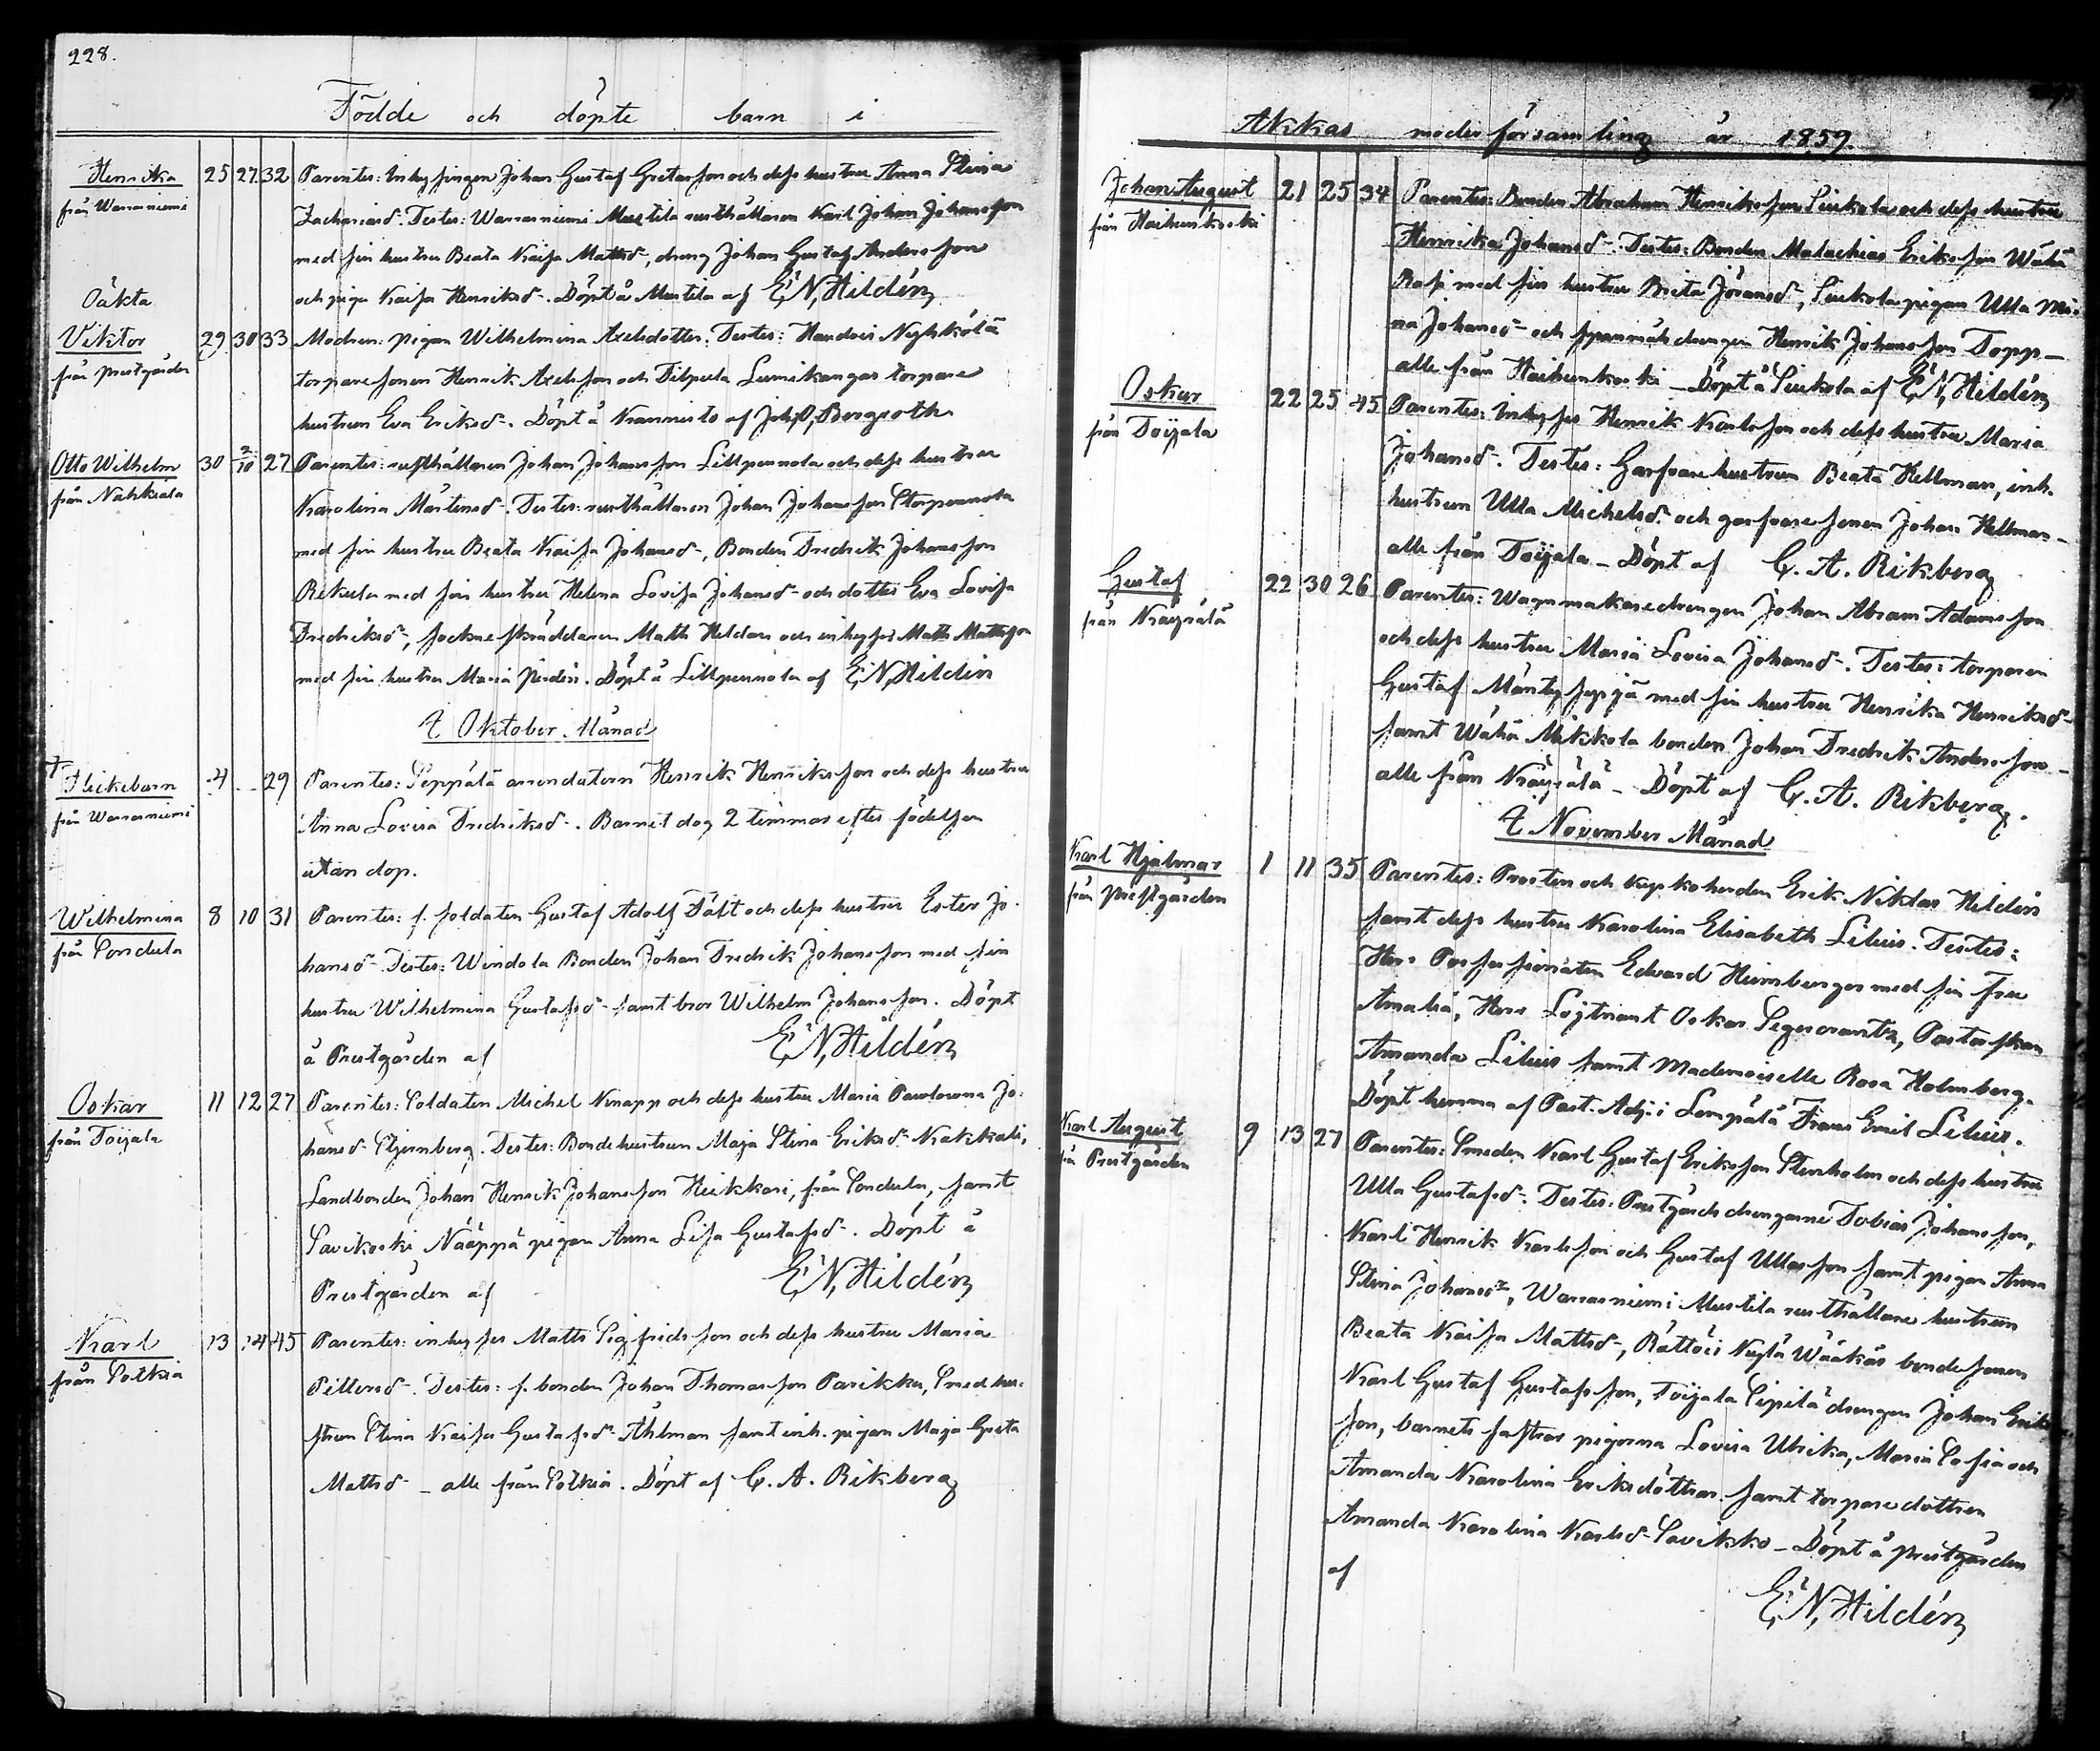 228.
Födde och döpte barn i
Henrika 25 27 32 Parentes: Inhysingen Johan Gustaf Gustafsson och dess hustru Anna Stina
från Warrasniemi Zachariasd-. Testes: Warrasniemi Mustila rusthållaren Karl Johan Johansson
med sin hustru Beata Kaisa Mattsd-, dreng Johan Gustaf Andersson
och piga Kaisa Henriksd-. Döpt å Mustila af E. N. Hildén
Oäkta
Viktor 29 30 33 Modren: pigan Wilhelmina Axelsdotter. Testes: Nyhkälä
från prestgården torparesonen Henrik Axelsson och torpare
hustrun Eva Eriksd-. Döpt å Krannisto af Bergroth
Otto Wilhelm 30 2/10 27 Parentes: rusthållaren Johan Johansson Lillpunnola och dess hustru
från Nahkiala Karolina Mårtensd-. Testes: rusthållaren Johan Johansson Storpunnola
med sin hustru Beata Kaisa Johansd-, Bonden Fredrik Johansson
Rekula med sin hustru Helena Lovisa Johansd- och dotter Eva Lovisa
Fredriksd-, sockneskräddaren Matts Heldan och inhyses Matts Mattsson
med sin hustru Maria. Döpt å Lillpunnola af E. N. Hildén
I Oktober Månad
+ Flickebarn 4 - 29 Parentes: Seppälä arrendatorn Henrik Henriksson och dess hustru
från Warrasniemi Anna Lovisa Fredriksd-. Barnet dog 2 timmar efter födelsen
utan dop.
Wilhelmina 8 10 31 Parentes: f. soldaten Gustaf Adolf Fält och dess hustru Ester Jo-
från Sondula hansd-. Testes: Windola Bonden Johan Fredrik Johansson med sin
hustru Wilhelmina Gustafsd- samt bror Wilhelm Johansson. Döpt
å Prestgården af E. N. Hildén
Oskar 11 12 27 Parentes: Soldaten Michel Knapp och dess hustru Maria Paulowna Jo-
från Toijala hansd- Stjernberg. Testes: Bondehustrun Maja Stina Eriksd- Kakkali,
Landbonden Johan Henrik Johansson Heikkari, från Sondula, samt
Savikoski Nääppä pigan Anna Lisa Gustafsd-. Döpt å
Prestgården af E. N. Hildén
Karl 13 14 45 Parentes: inhyses Matts Sigfridsson och dess hustru Maria
från Sotkia Pettersd-. Testes: f. bonden Johan Thomasson Parikka, Smedhu-
strun Stina Kaisa Gustafsd- Åhlman samt inh. pigan Maja Greta
Mattsd- _ alle från Sotkia. Döpt af C. A. Rikberg
Akkas moderförsamling år 1859.
Johan August 21 25 34 Parentes: Bonden Abraham Henriksson Siukola och dess hustru
från Haihunkoski Henrika Johansd-. Testes: Bonden Malachias Eriksson Wähä
Rasi med sin hustru Brita Göransd-, Siukola pigan Ulla Mi-
na Johansd- och spannmåls drengen Henrik Johansson Topp _
alle från Haihunkoski _ Döpt å Siukola af E. N. Hildén
Oskar 22 25 45 Parentes: Inhyses Henrik Karlsson och dess hustru Maria
från Toijala Johansd-. Testes: Garfvarehustrun Beata Hellman, inh.
hustrun Ulla Michelsd- och garfvaresonen Johan Hellman _
alle från Toijala _ Döpt af C. A. Rikberg
Gustaf 22 30 26 Parentes: Wagnmakaredrengen Johan Abram Adamsson
från Kräyrälä och dess hustru Maria Lovisa Johansd-. Testes: torparen
Gustaf Mäntysyrjä med sin hustru Henrika Henriksd-
samt Wähä Mikkola bonden Johan Fredrik Andersson _
alle från Kräyrälä _ Döpt af C. A. Rikberg.
I November Månad
Karl Hjalmar 1 11 35 Parentes: Prosten och kyrkoherden Erik Niklas Hildén
från prestgården samt dess hustru Karolina Elisabeth Lilius. Testes:
Herr Possessionaten Edvard Heimburger med sin Fru
Amalia, Herr Löjtnant Oskar Segercrantz, Pastorskan
Amanda Lilius samt Mademoiselle Rosa Holmberg.
Döpt hemma af Past. Adj. i Lempälä Frans Emil Lilius.
Karl August 9 13 27 Parentes: Smeden Karl Gustaf Eriksson Stenholm och dess hustru
från Prestgården Ulla Gustafsd-. Testes: Prestgårds drengarne Tobias Johansson,
Karl Henrik Karlsson och Gustaf Ullasson samt pigan Anna
Stina Johansd-, Warrasniemi Mustila rusthållare hustrun
Beata Kaisa Mattsd-, Rättöis Nuylä Wääkäs bondesonen
Karl Gustaf Gustafsson, Toijala Sipilä drengen Johan Eriks-
son, barnets fastrar pigorna Lovisa Ulrika, Maria Sofia och
Amanda Karolina Eriksdöttrar samt torparedottren
Amanda Karolina Karlsd- Savikko _ Döpt å prestgården
af E. N. Hildén